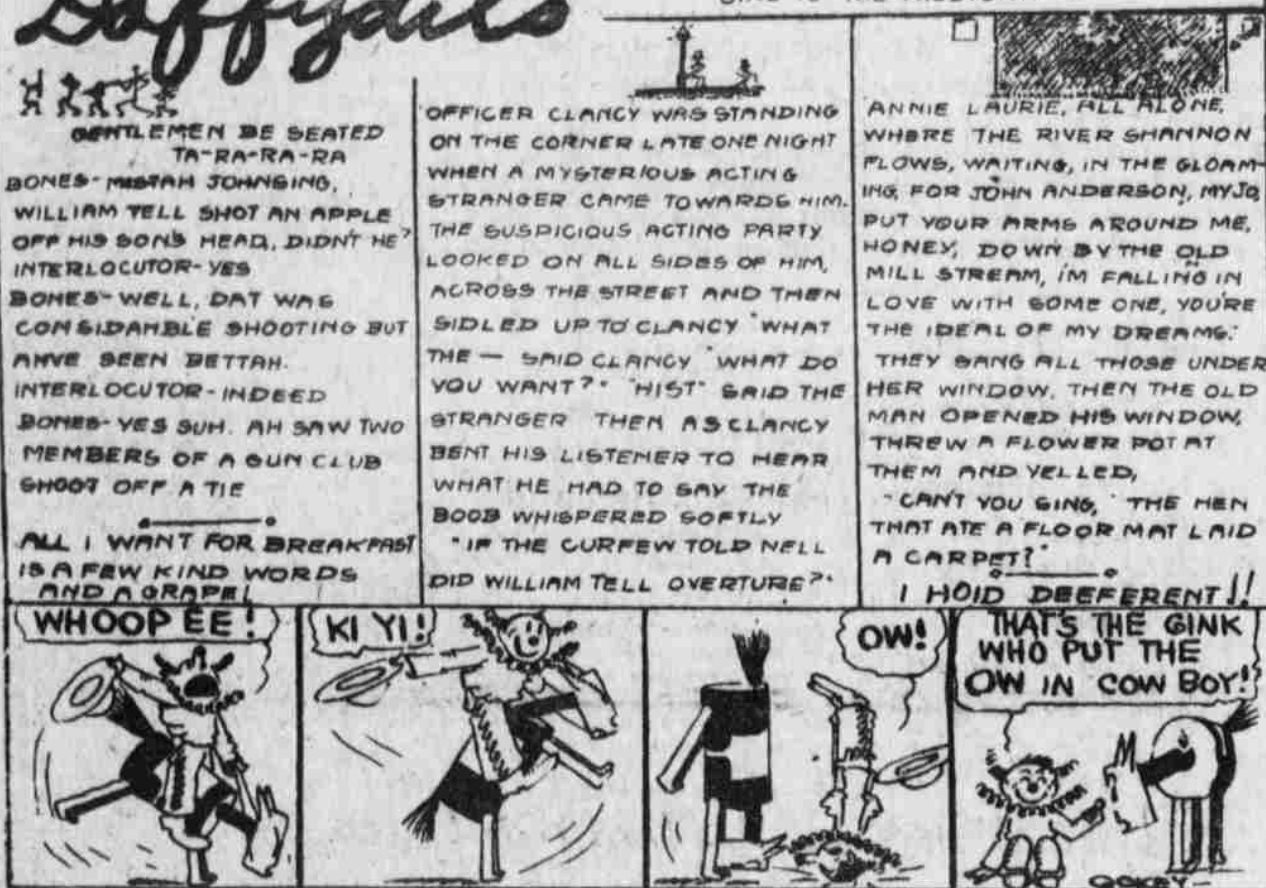 Daffydils
GENTLEMEN BE SEATED
TA-RA-RA-RA
BONES-MISTAH JOHNSING,
WILLIAM TELL SHOT AN APPLE
OFF HIS SON'S HEAD, DIDN'T HE?
INTERLOCUTOR-YES
BONES-WELL, DAT WAS
CONSIDAHBLE SHOOTING BUT
AHVE SEEN BETTAH.
INTERLOCUTOR-INDEED
BONES-YES SUH. AH SAW TWO
MEMBERS OF A GUN CLUB
SHOOT OFF A TIE
ALL I WANT FOR BREAKFAST
IS A FEW KIND WORDS
AND A GRAPE!
OFFICER CLANCY WAS STANDING
ON THE CORNER LATE ONE NIGHT
WHEN A MYSTERIOUS ACTING
STRANGER CAME TOWARDS HIM.
THE SUSPICIOUS ACTING PARTY
LOOKED ON ALL SIDES OF HIM,
ACROSS THE STREET AND THEN
SIDLED UP TO CLANCY "WHAT
THE — SAID CLANCY "WHAT DO
YOU WANT?" "HIST" SAID THE
STRANGER THEN AS CLANCY
BENT HIS LISTENER TO HEAR
WHAT HE HAD TO SAY THE
BOOB WHISPERED SOFTLY
"IF THE CURFEW TOLD NELL
DID WILLIAM TELL OVERTURE?"
"ANNIE LAURIE, ALL ALONE,
WHERE THE RIVER SHANNON
FLOWS, WAITING, IN THE GLOAM-
ING, FOR JOHN ANDERSON, MY JO,
PUT YOUR ARMS AROUND ME,
HONEY, DOWN BY THE OLD
MILL STREAM, I'M FALLING IN
LOVE WITH SOME ONE, YOU'RE
THE IDEAL OF MY DREAMS."
THEY SANG ALL THOSE UNDER
HER WINDOW. THEN THE OLD
MAN OPENED HIS WINDOW,
THREW A FLOWER POT AT
THEM AND YELLED,
"CAN'T YOU SING, "THE HEN
THAT ATE A FLOOR MAT LAID
A CARPET?"
I HOID DEEFERENT!!
WHOOP EE!
KI YI!
OW!
THAT'S THE GINK
WHO PUT THE
OW IN COW BOY!!